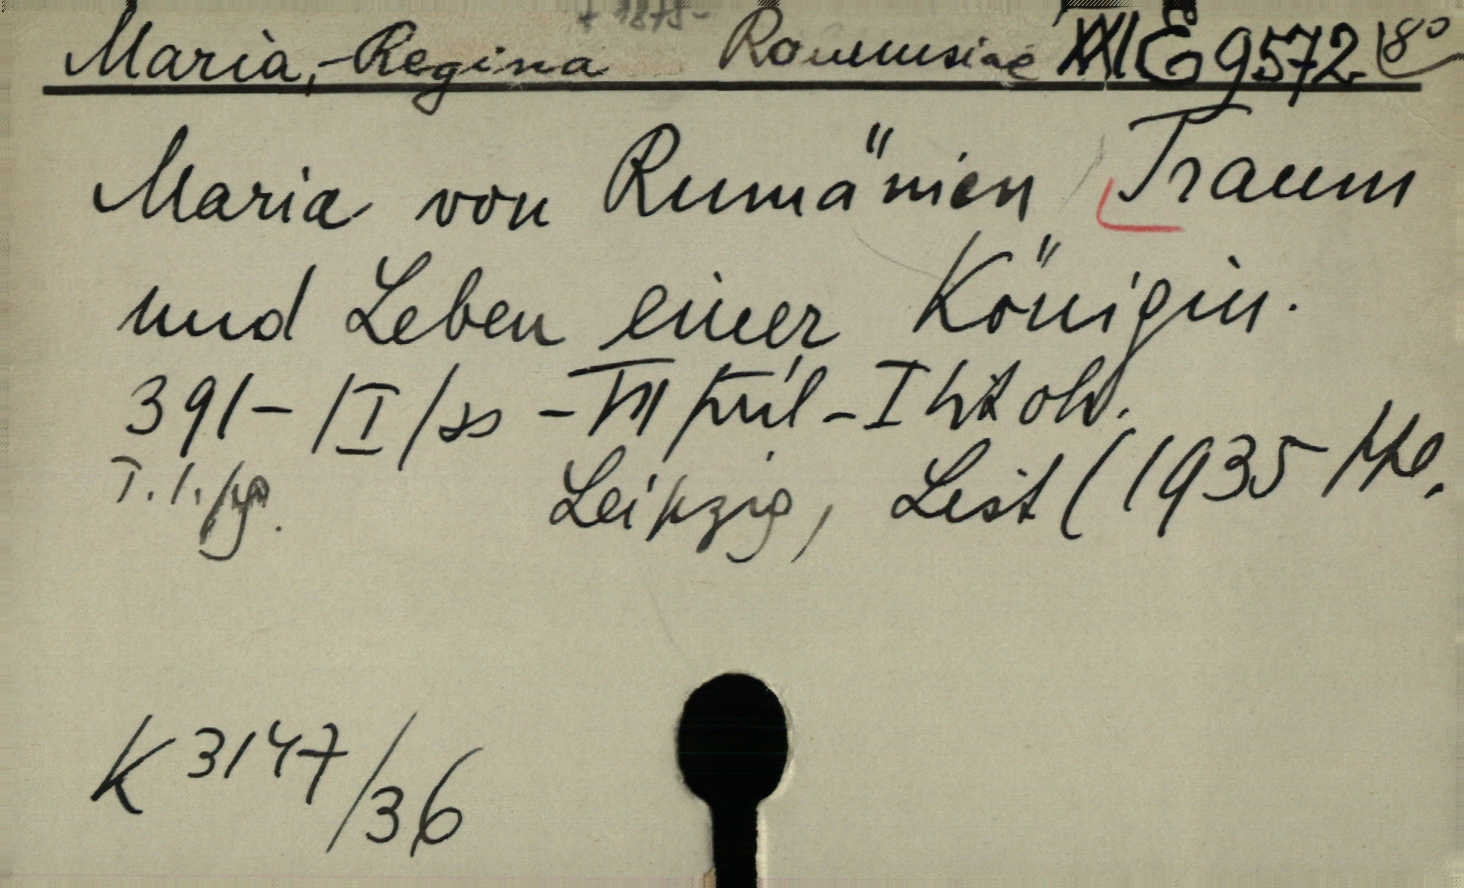 * 1875-
Maria, -Regina Roumusiae XXI E 9572 8°
Maria von Rumänien Traum
und Leben einer Königin.
391- /I/ss - VII - I
T. 1. Leipzig, List (1935
K 3147/36